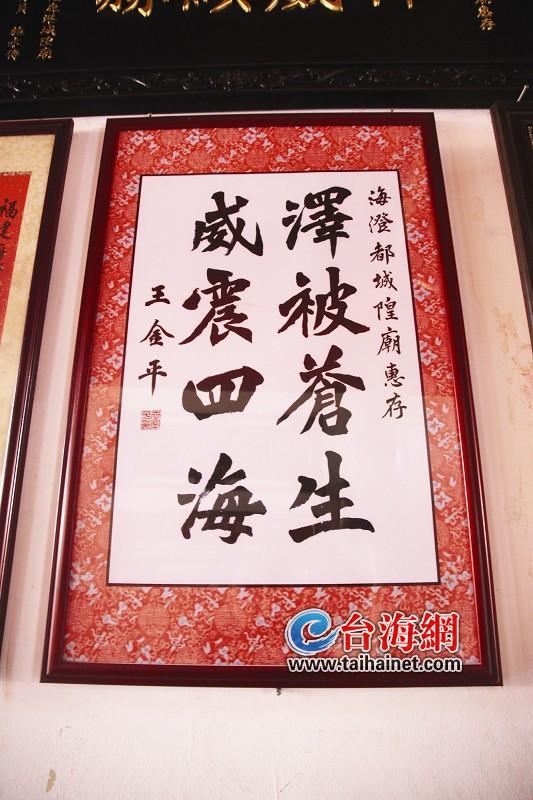 海澄都城隍廟惠存
澤被蒼生
威震四海
王金平
福建
惠存
台海網
www.taihainet.com